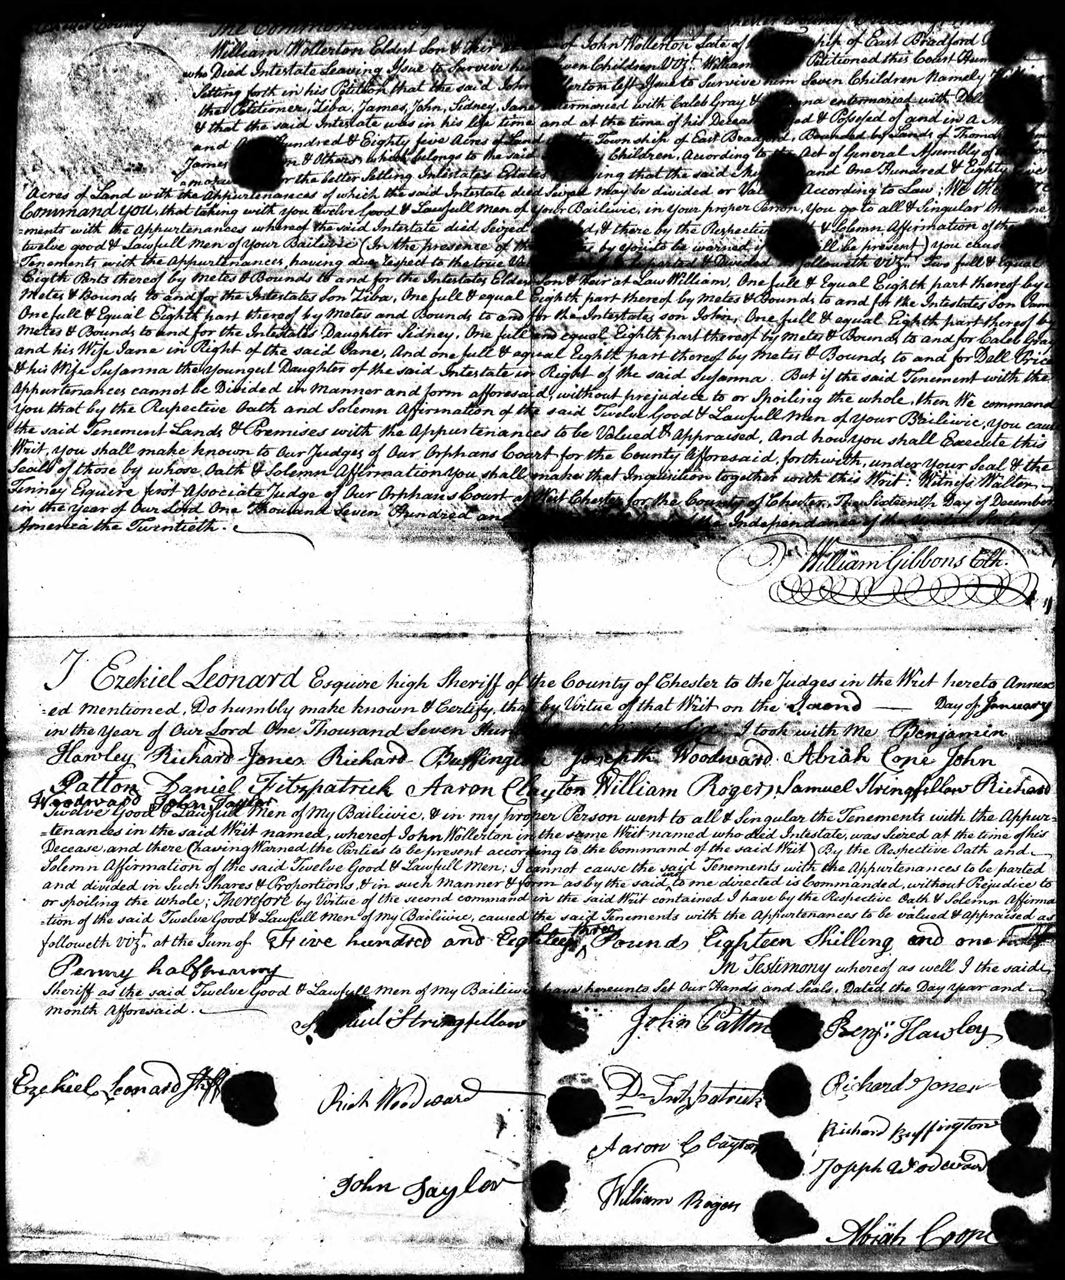 William Wollerton Eldest Son & Heir of John Wollerton late of ship of East Bradford
who Died Intestate Leaving Issue to Survive him Seven Children Vizt. William Petitioned this Court
Setting forth in his Petition that the said John Wollerton left Issue to Survive him Seven Children Namely
the Petitioner, Ziba, James, John, Sidney, Jane intermarried with Caleb Gray & entermarried with
& that the said Intestate was in his life time and at the time of his Decease & Possesed of and in a
and Hundred & Eighty five Acres of Land Township of East Bradford, Bounded by Lands of Thomas
James & Others which belongs to the said Children, According to the Act of General Assembly of
for the better Setling Intestates Estates that the said and One Hundred & Eighty five
Acres of Land with the Appurtenances of which the said Intestate died Seized may be divided or According to Law, We therefore
Command you, that taking with you twelve Good & Lawfull Men of Your Bailiwic, in your proper Person, You go to all & Singular the Tene
ments with the Appurtenances whereof the said Intestate died Seized & there by the Respective & Solemn Affirmation of the
twelve good & Lawfull Men of Your Bailiwic (In the presence of the by you to be warned if will be present) you cause
Tenements with the Appurtenances, having due respect to the true to be parted & Divided followeth vizt. Two full & Equal
Eigth Parts thereof by Metes & Bounds to and for the Intestates Eldest Son & Heir at Law William, One full & Equal Eighth part thereof by
Metes & Bounds to and for the Intestates Son Ziba, One full & equal Eighth part thereof by Metes & Bounds to and for the Intestates Son James
One full & Equal Eighth part thereof by Metes and Bounds to and for the Intestates son John, One full & equal Eighth part thereof by
Metes & Bounds to and for the Intestates Daughter Sidney, One full and equal Eighth part thereof by Metes & Bounds to and for Caleb Gray
and his Wife Jane in Right of the said Jane, And one full & equal Eighth part thereof by Metes & Bounds to and for Dell Price
& his Wife Susanna the Youngest Daughter of the said Intestate in Right of the said Susanna. But if the said Tenement with the
Appurtenances cannot be Divided in Manner and form aforesaid, without prejudice to or Spoiling the whole, then We command
You that by the Respective Oath and Solemn Affirmation of the said Twelve Good & Lawfull Men of Your Bailiwic, You cause
the said Tenement Lands & Premises with the Appurtenances to be Valued & Appraised, And how you shall Execute this
Writ, you shall make known to Our Judges of Our Orphans Court for the County Aforesaid, forthwith, under Your Seal & the
Seals of those by whose Oath & Solemn Affirmation You shall make that Inquisition together with this Writ. Witness Walter
Finney Esquire first Associate Judge of Our Orphans Court at West Chester for the County of Chester, The Sixteenth Day of December
in the Year of Our Lord One Thousand Seven Hundred and the Independance of the United States of
America the Twentieth.
William Gibbons Clk.
I Ezekiel Leonard Esquire high Sheriff of the County of Chester to the Judges in the Writ hereto Annex
=ed mentioned, Do humbly make known & Certify, that by Virtue of that Writ on the Second Day of January
in the Year of Our Lord One Thousand Seven I took with Me Benjamin
Hawley Richard Jones Richard Buffington Joseph Woodward Abiah Cope John
Patton Daniel Fitzpatrick Aaron Clayton William Rogers, Samuel Stringfellow Richard
Woodward John Taylor
Twelve Good & Lawfull Men of My Bailiwic, & in my proper Person went to all & Singular the Tenements with the Appur=
=tenances in the said Writ named, whereof John Wollerton in the same Writ named who died Intestate, was Siezed at the time of his
Decease, and there (having Warned the Parties to be present according to the Command of the said Writ) By the Respective Oath and
Solemn Affirmation of the said Twelve Good & Lawfull Men; I cannot cause the said Tenements with the Appurtenances to be parted
and divided in Such Shares & Proportions, & in such Manner & form as by the said Writ to me directed is Commanded, without Prejudice to
or spoiling the whole; Therefore by Virtue of the second command in the said Writ contained I have by the Respective Oath & Solemn Affirma
=tion of the said Twelve Good & Lawfull Men of My Bailiwic, caused the said Tenements with the Appurtenances to be valued & Appraised as
followeth vizt. at the Sum of Five hundred and Eighty three Pounds Eighteen Shilling and one
Penny halfpenny
In Testimony whereof as well I the said
Sheriff as the said Twelve Good & Lawfull Men of My Bailiwic have hereunto Set Our Hands and Seals, Dated the Day Year and
month Aforesaid.
Samuel Stringfellow
John Patton
Benj: Hawley
Ezekiel Leonard Shff
Rich Woodward
D Fitzpatrick
Richard Jones
Aaron Clayton
Richard Buffington
John Taylor
William Rogers
Joseph Woodward
Abiah Cope